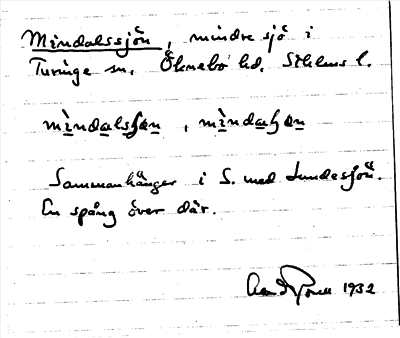 Mindalssjön, mindre sjö i
Turinge sn, Öknebo hd. Sthlms l.
mìndalsʃøn, mìndaʃøn
Sammanhänger i S. med Lundesjön.
En spång över där.
1932